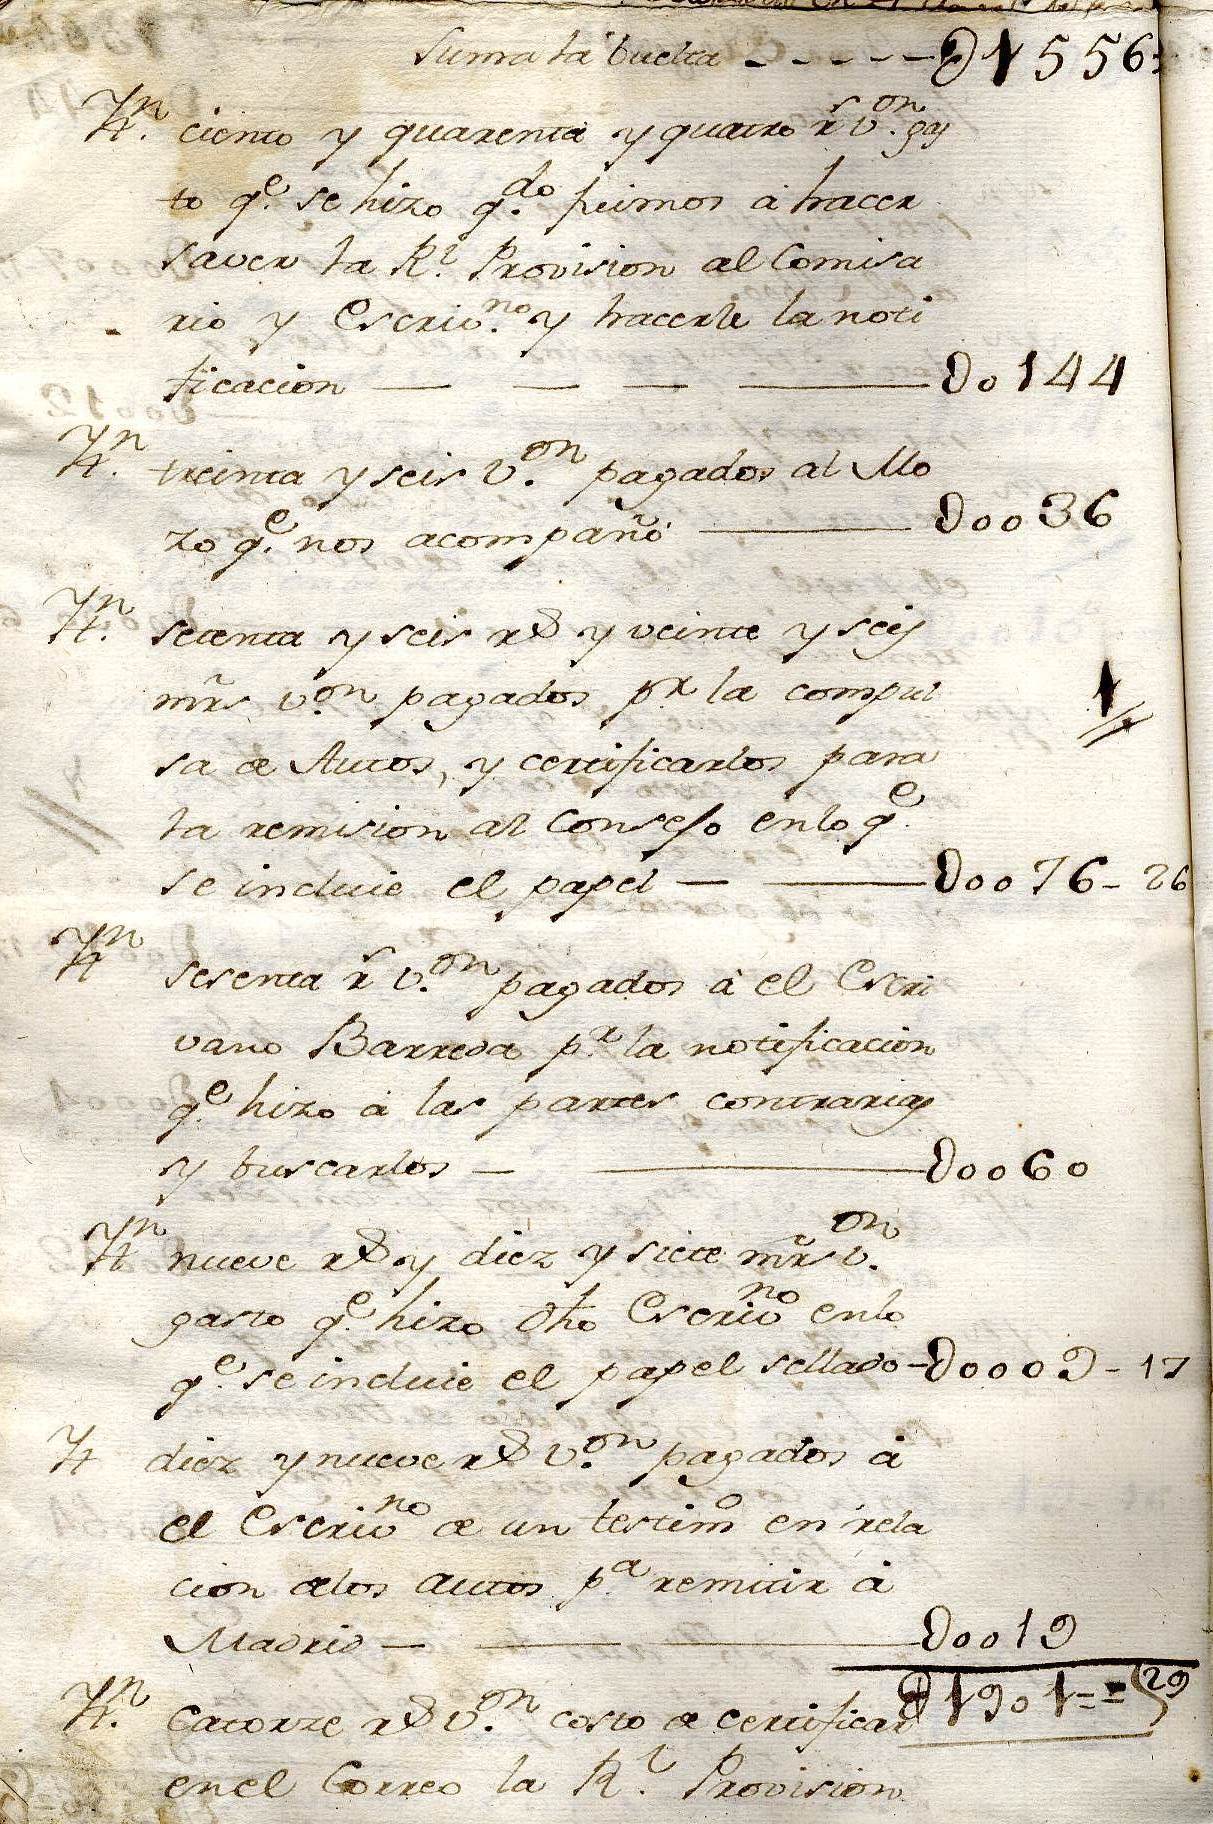 Suma la buelta - - - - - - D1556=
Yttn. ciento y quarenta y quatro rs von. gas
to qe. se hizo qdo. fuimos á hacer
saver la Rl. Provision al Comisa
rio y Escrivno. y hacerle la noti
ficacion — — — — D0144
Yttn. treinta y seis von. pagados al Mo
zo qe. nos acompañó — D0036
Yttn. setenta y seis rs y veinte y seis
mrs von. pagados pr. la compul
sa de Autos, y certificarlos para
la remision al Consejo en lo qe.
se incluie el papel — — D0076-26
Yttn sesenta rs von. pagados á el Escri
vano Barreda pr. la notificacion
qe. hizo á las partes contrarias
y buscarlos — — D0060
Yttn nueve rs y diez y siete mrs von.
gasto qe. hizo dho Escrivno en lo
qe. se incluie el papel sellado - D0009-17
Ytt diez y nueve rs von. pagados á
el Escrivno de un testimo en rela
cion de los autos pa. remitir á
Madrid — — — D0019
D1901==29
Yttn. catorze rs von. costo de certificar
en el Correo la Rl. Provision